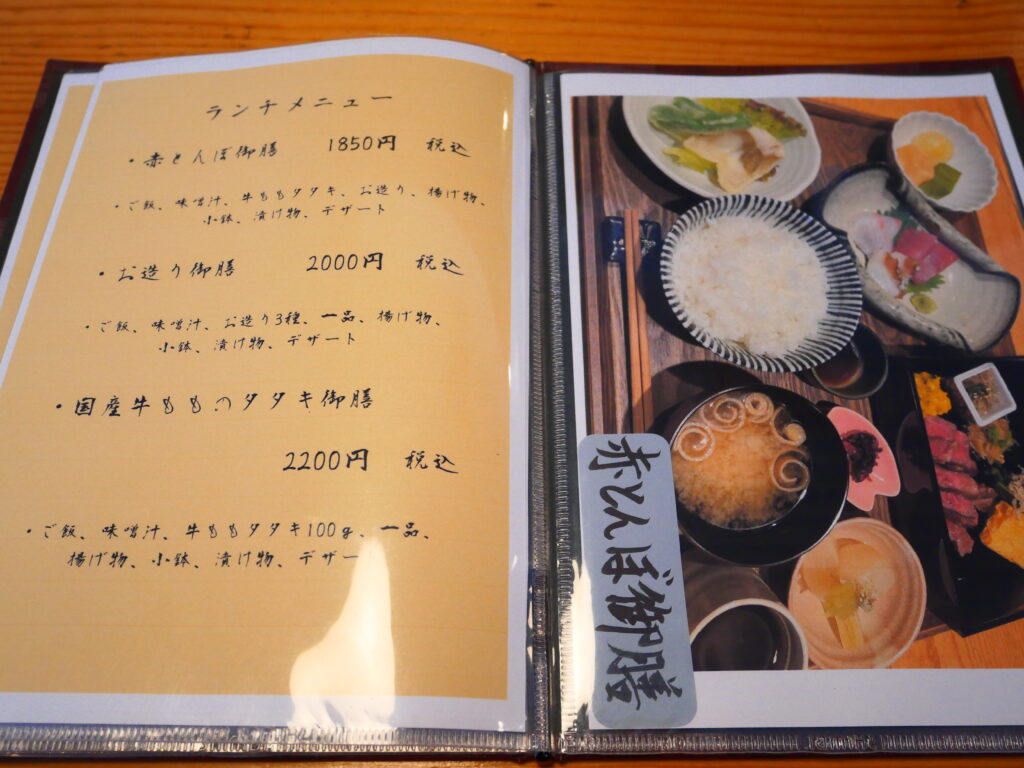 ランチメニュー
・赤とんぼ御膳 1850円 税込
・ご飯、味噌汁、牛ももタタキ、お造り、揚げ物、
小鉢、漬け物、デザート
・お造り御膳 2000円 税込
・ご飯、味噌汁、お造り3種、一品、揚げ物、
小鉢、漬け物、デザート
・国産牛もものタタキ御膳
2200円 税込
・ご飯、味噌汁、牛ももタタキ100g、一品、
揚げ物、小鉢、漬け物、デザー
赤とんぼ御膳